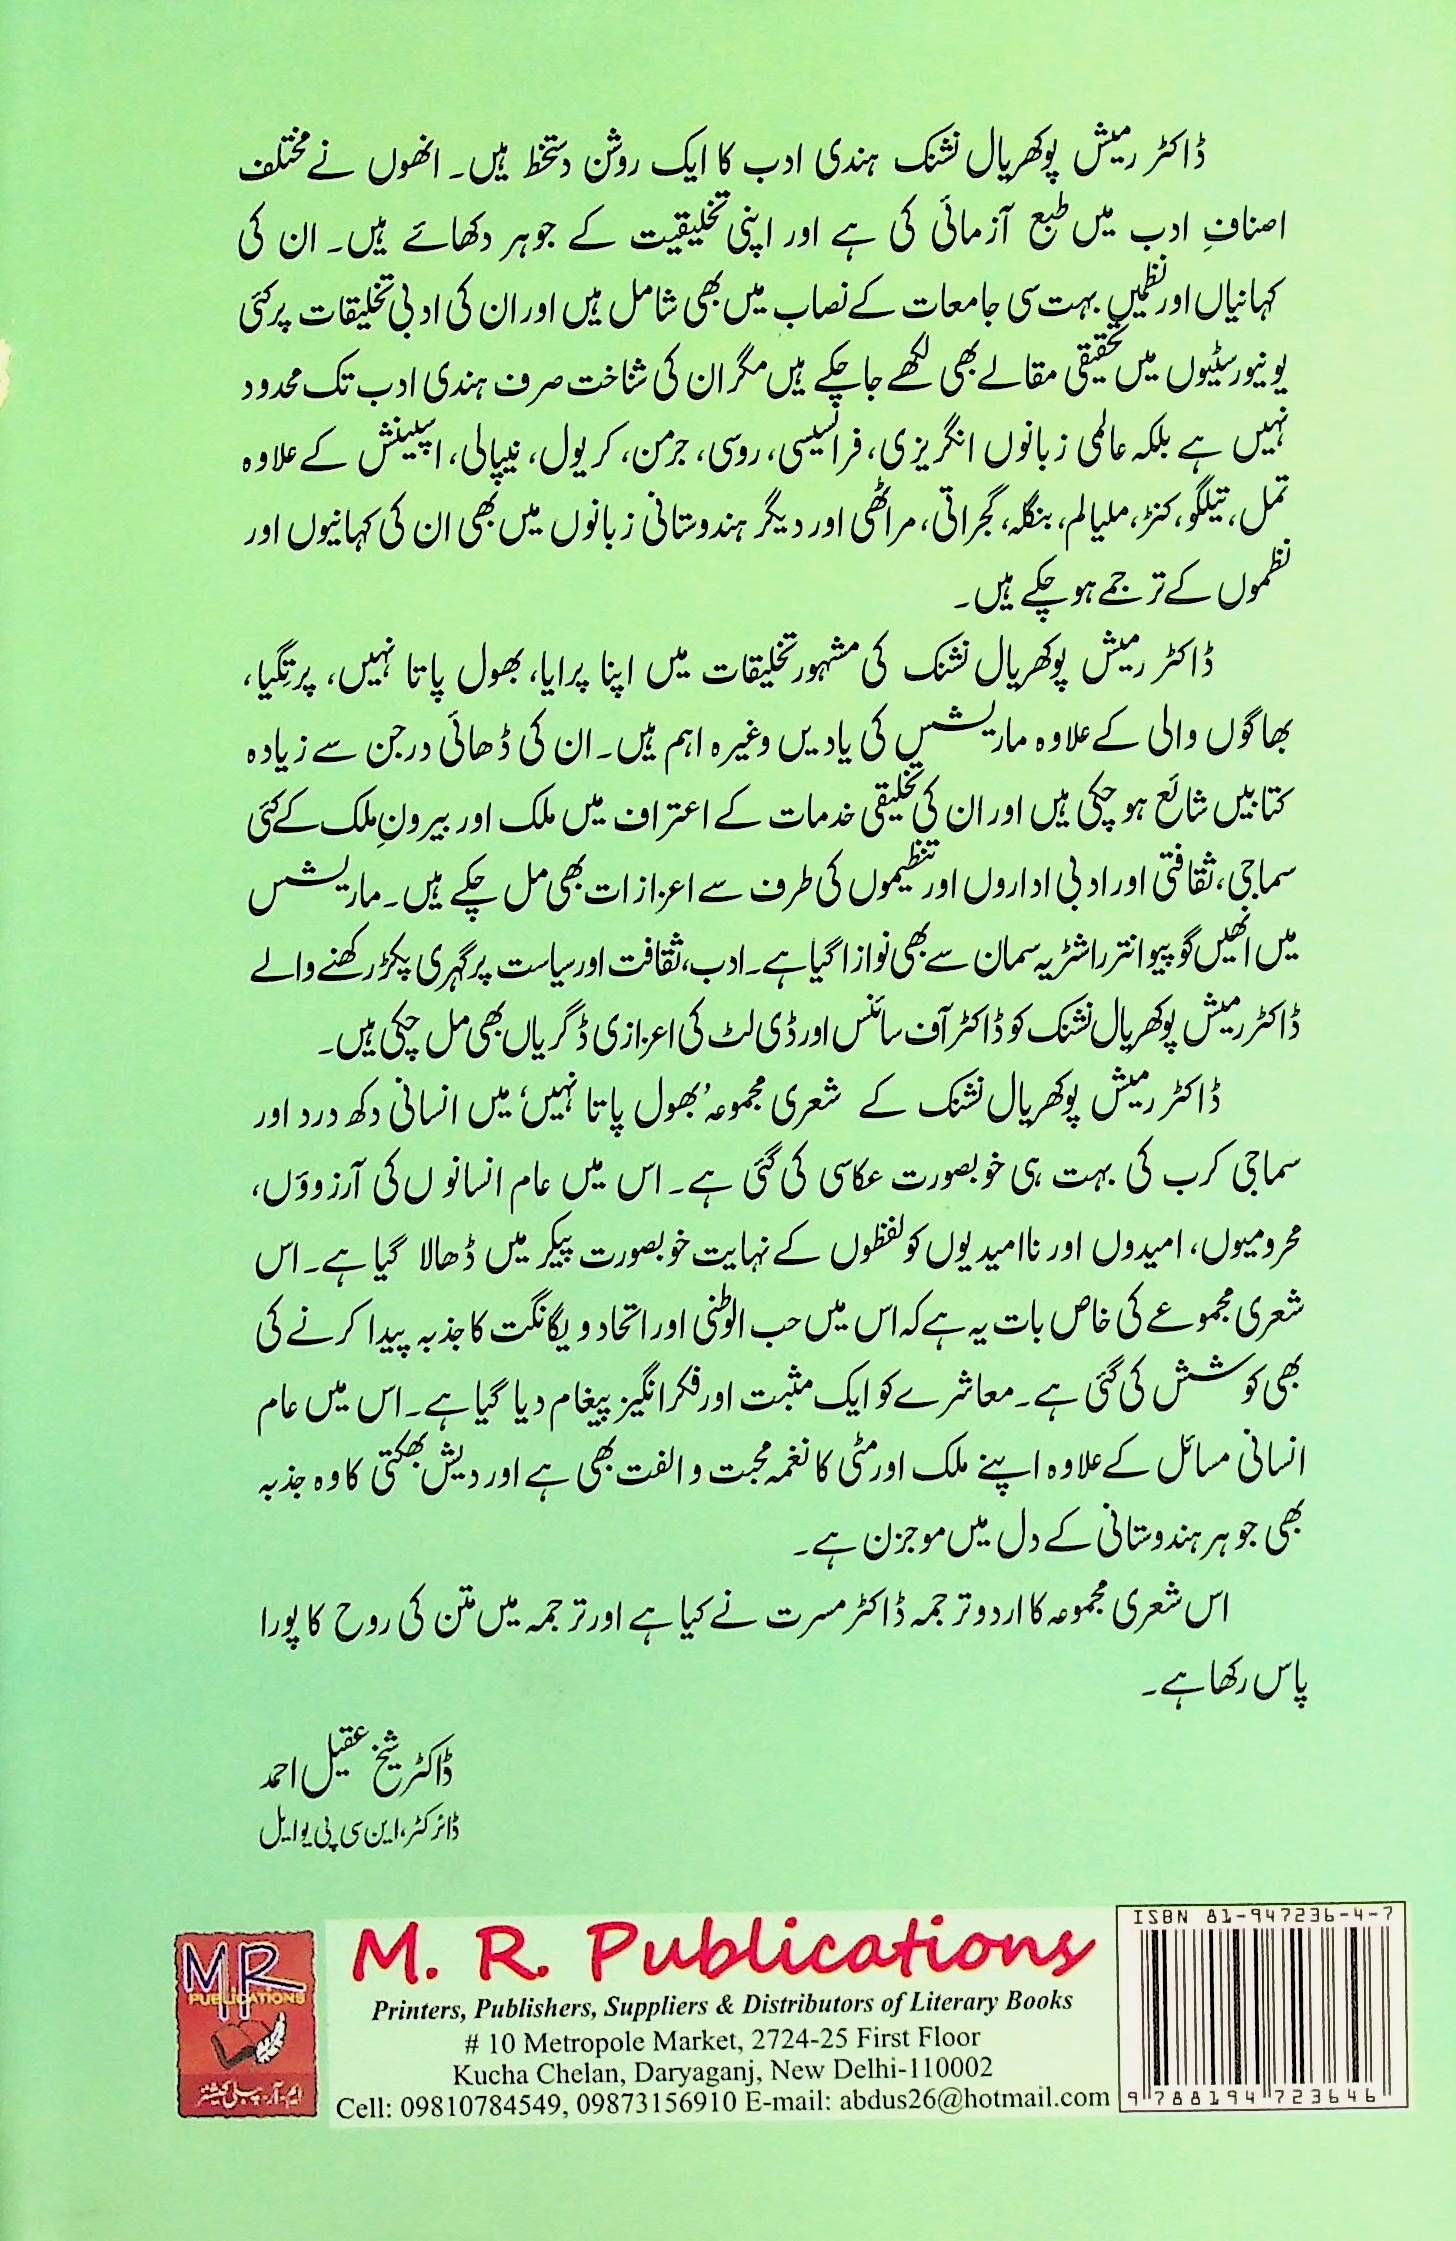 ڈاکٹر رمیش پوکھریال نشنک ہندی ادب کا ایک روشن دستخط ہیں۔ انھوں نے مختلف
اصنافِ ادب میں طبع آزمائی کی ہے اور اپنی تخلیقیت کے جوہر دکھائے ہیں۔ ان کی
کہانیاں اور نظمیں بہت سی جامعات کے نصاب میں بھی شامل ہیں اور ان کی ادبی تخلیقات پر کئی
یونیورسٹیوں میں تحقیقی مقالے بھی لکھے جاچکے ہیں مگر ان کی شناخت صرف ہندی ادب تک محدود
نہیں ہے بلکہ عالمی زبانوں انگریزی، فرانسیسی، روسی، جرمن، کریول، نیپالی، اسپینش کے علاوہ
تمل، تیلگو، کنڑ، ملیالم، بنگلہ، گجراتی، مراٹھی اور دیگر ہندوستانی زبانوں میں بھی ان کی کہانیوں اور
نظموں کے ترجمے ہوچکے ہیں۔
ڈاکٹر رمیش پوکھریال نشنک کی مشہور تخلیقات میں اپنا پرایا، بھول پاتا نہیں، پرتگیا،
بھاگوں والی کے علاوہ ماریشس کی یادیں وغیرہ اہم ہیں۔ ان کی ڈھائی درجن سے زیادہ
کتابیں شائع ہوچکی ہیں اور ان کی تخلیقی خدمات کے اعتراف میں ملک اور بیرونِ ملک کے کئی
سماجی، ثقافتی اور ادبی اداروں اور تنظیموں کی طرف سے اعزازات بھی مل چکے ہیں۔ ماریشس
میں انھیں گوپیو انترراشٹریہ سمان سے بھی نوازا گیا ہے۔ ادب، ثقافت اور سیاست پر گہری پکڑ رکھنے والے
ڈاکٹر رمیش پوکھریال نشنک کو ڈاکٹر آف سائنس اور ڈی لٹ کی اعزازی ڈگریاں بھی مل چکی ہیں۔
ڈاکٹر رمیش پوکھریال نشنک کے شعری مجموعہ ’بھول پاتا نہیں‘ میں انسانی دکھ درد اور
سماجی کرب کی بہت ہی خوبصورت عکاسی کی گئی ہے۔ اس میں عام انسانوں کی آرزوؤں،
محرومیوں، امیدوں اور ناامیدیوں کو لفظوں کے نہایت خوبصورت پیکر میں ڈھالا گیا ہے۔ اس
شعری مجموعے کی خاص بات یہ ہے کہ اس میں حب الوطنی اور اتحاد و یگانگت کا جذبہ پیدا کرنے کی
بھی کوشش کی گئی ہے۔ معاشرے کو ایک مثبت اور فکر انگیز پیغام دیا گیا ہے۔ اس میں عام
انسانی مسائل کے علاوہ اپنے ملک اور مٹی کا نغمہ محبت و الفت بھی ہے اور دیش بھکتی کا وہ جذبہ
بھی جو ہر ہندوستانی کے دل میں موجزن ہے۔
اس شعری مجموعہ کا اردو ترجمہ ڈاکٹر مسرت نے کیا ہے اور ترجمہ میں متن کی روح کا پورا
پاس رکھا ہے۔
ڈاکٹر شیخ عقیل احمد
ڈائرکٹر، این سی پی یو ایل
MR
PUBLICATIONS
ایم۔آر۔پبلی کیشنز
M. R. Publications
Printers, Publishers, Suppliers & Distributors of Literary Books
# 10 Metropole Market, 2724-25 First Floor
Kucha Chelan, Daryaganj, New Delhi-110002
Cell: 09810784549, 09873156910 E-mail: abdus26@hotmail.com
ISBN 81-947236-4-7
9 788194 723646